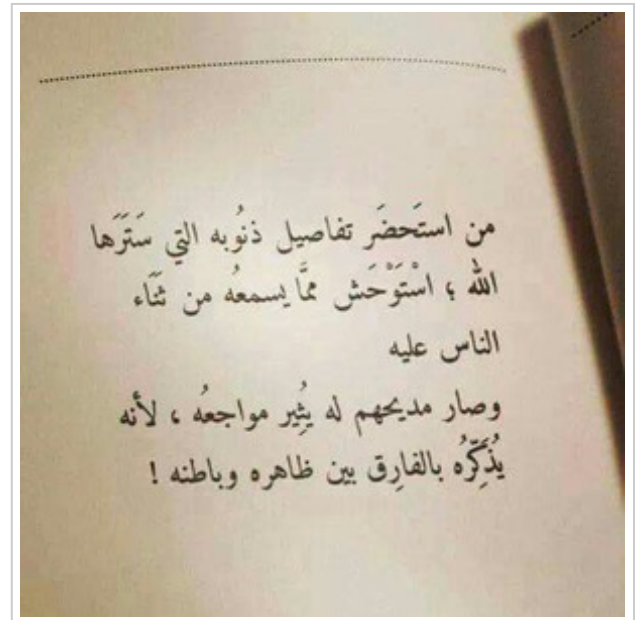 من استَحضَر تفاصيل ذنُوبه التي سَتَرَها
الله ؛ استَوْحَش ممَّا يسمعُه من ثَنَاء
الناس عليه
وصار مديحهم له يُثِير مواجعُه ، لأنه
يُذَكِّرُه بالفارِق بين ظاهره وباطنه !